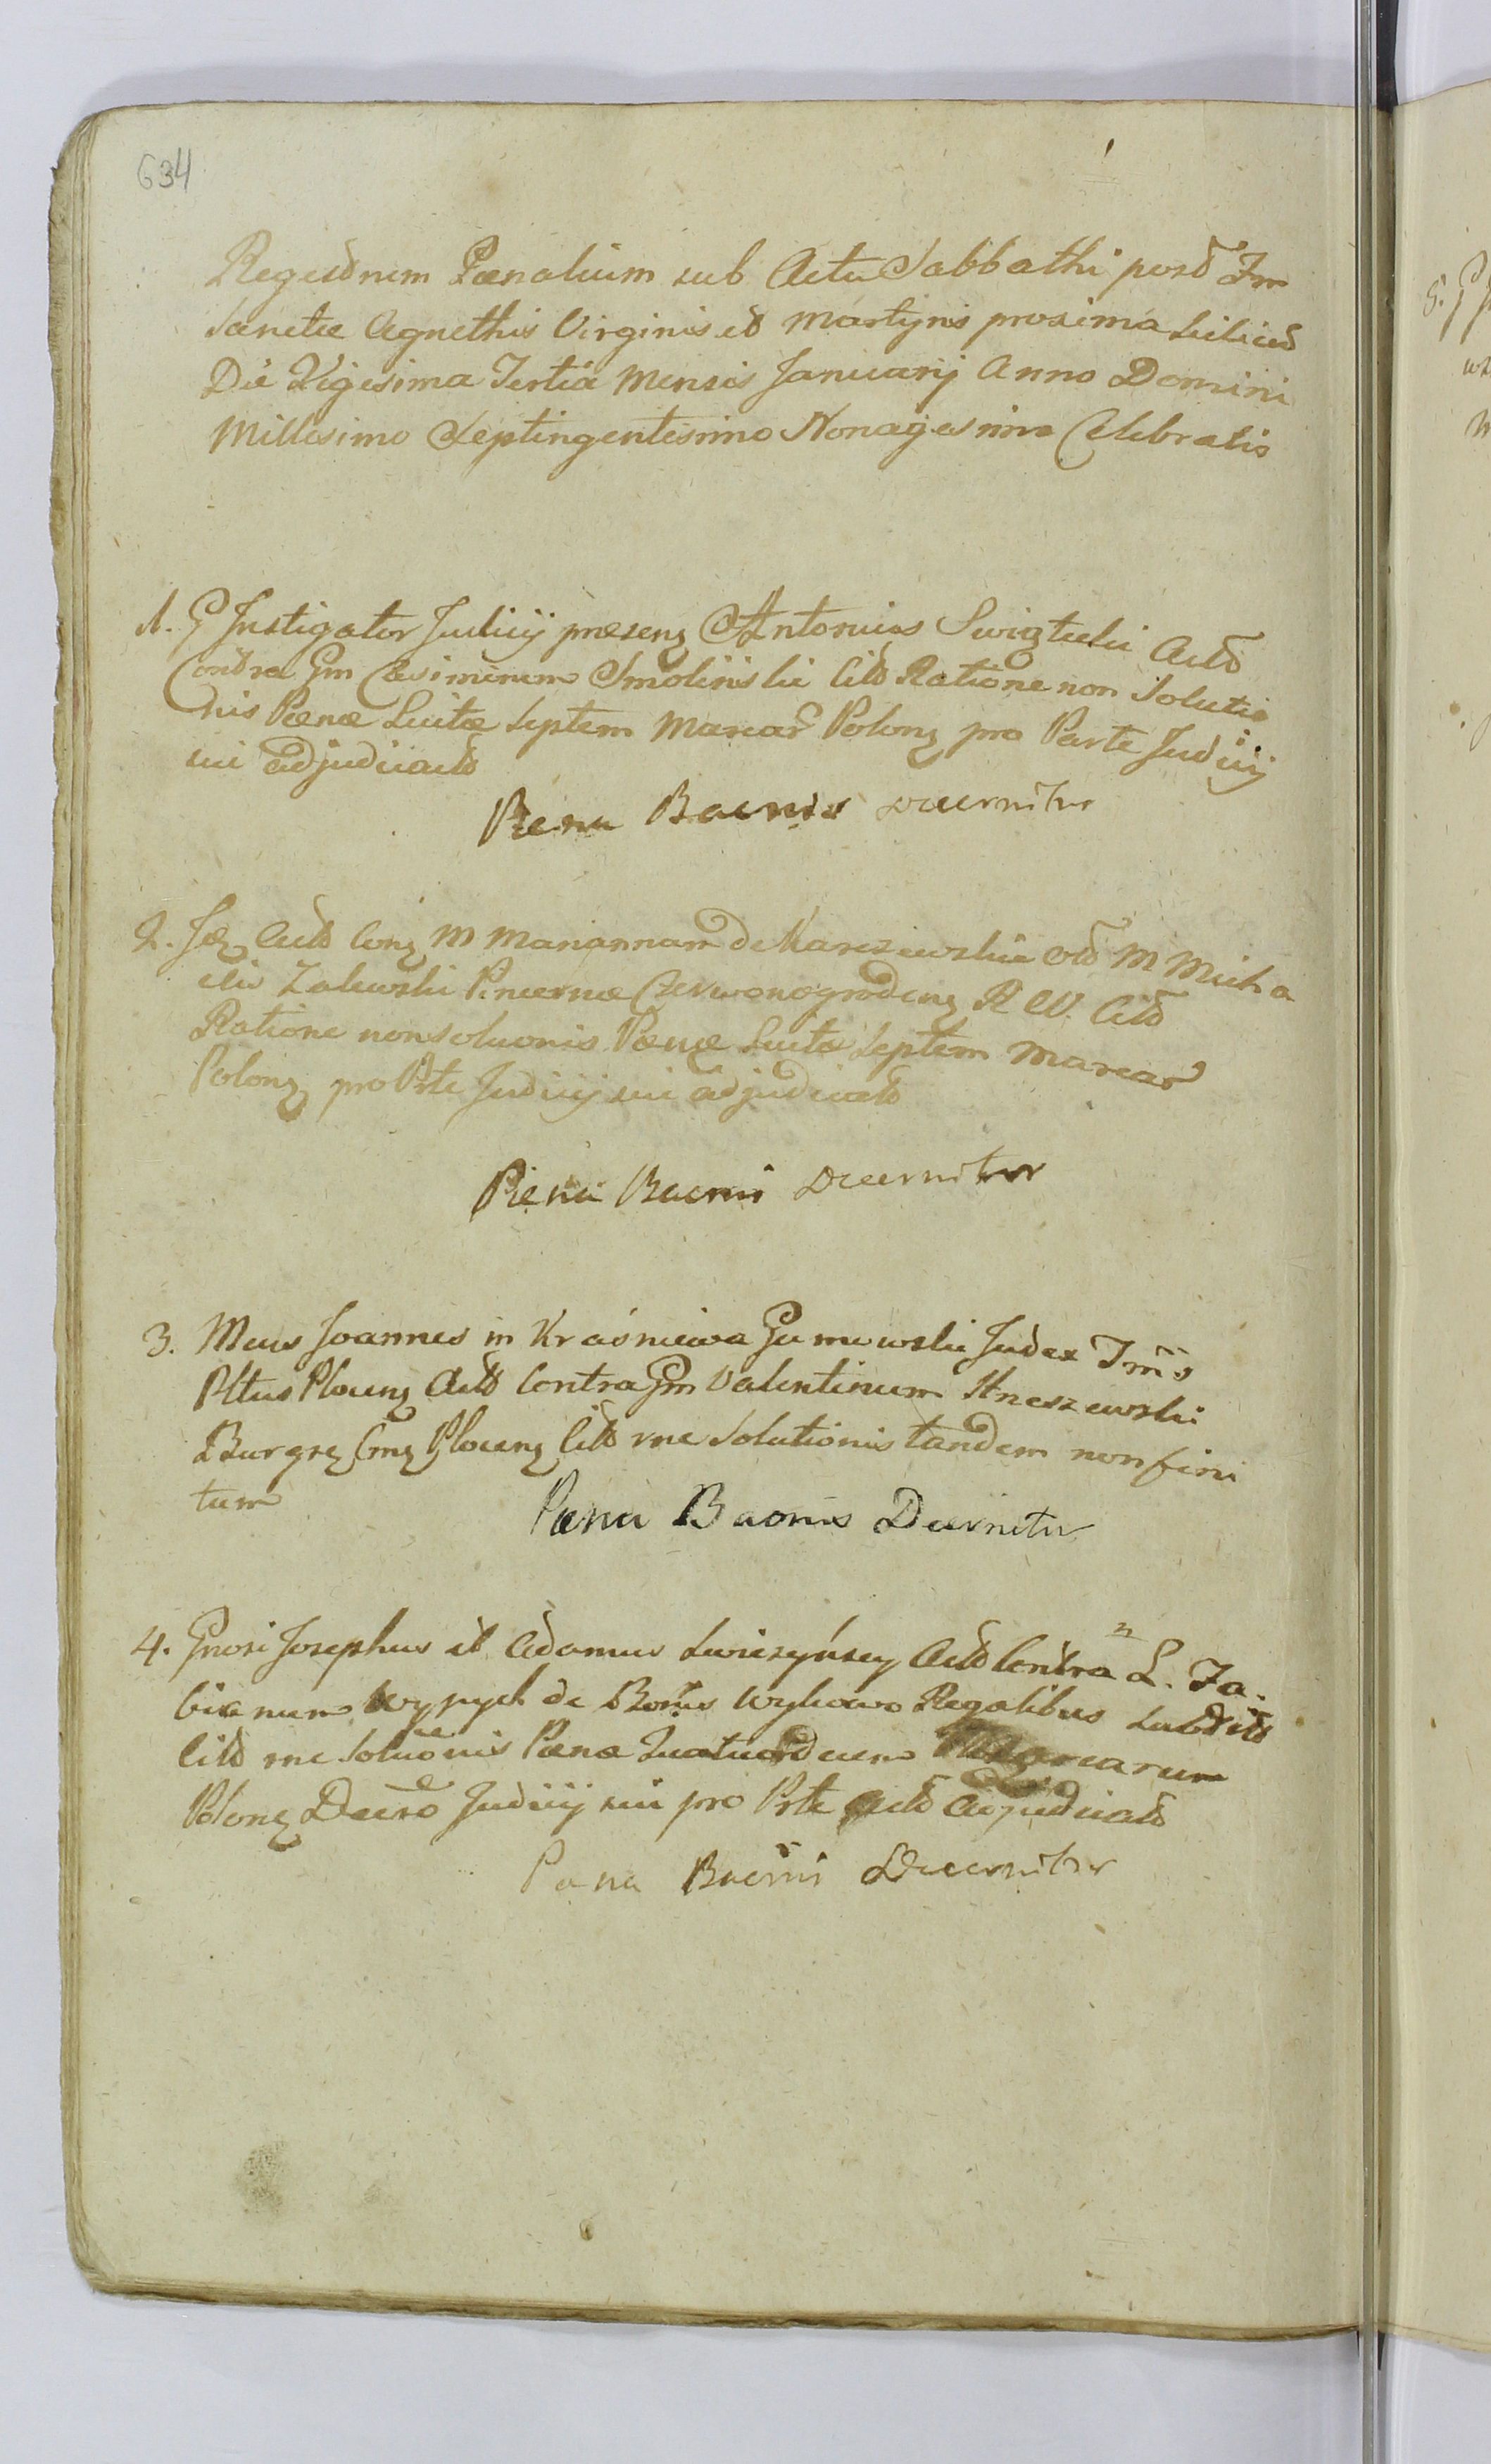 634
Regestrum Pœnalium sub Actu Sabbathi post Fm
Sanctæ Agnethis Virginis et Martyris proxima scilicet
Die Vigesima Tertia Mensis Januarij Anno Domini
Millesimo Septingentesimo Nonagesimo Celebratis
1. G Instigator Judicij præsenz Antonius Swigtecki Actt
Contra Gm Casimirum Smolinski Citt Ratione non Solutio
nis Pœnæ Luitæ Septem Marcar Polonz pro Parte Judicij
sui adjudicatt
Pœna Bacnis Decernitur
2. Idz Actt conz M Mariannam de Karczewskie ott M Micha
elis Zalewski Pincernæ Czerwonogrodenz R Citt
Ratione non soluonis Pœnæ Luitæ Septem Marcar
Polonz pro Prte Judicij sui adjudicatt
Pœna Bacnis Decernitur
3. Mcus Joannes in Kraśniewa Gumowski Judex Tmris
Pltus Plocenz Actt Contra Gm Valentinum Kneszewski
Burgrz Cmz Plocenz Citt rne Solutionis tandem non fini
tum
Pœna Baonis Decernitur
4. Gnosi Josephus et Adamus Swiezyńscy Actt Contra L. Fa-
bianum Wypych de Bonis Wykowo Regalibus Subditt
Citt rne Soluönis Pœnæ Quatuordecem Marcarum
Polonz Decreo Judicij sui pro Prte Actt adjudicatt
Pœna Bacnis Decernitur